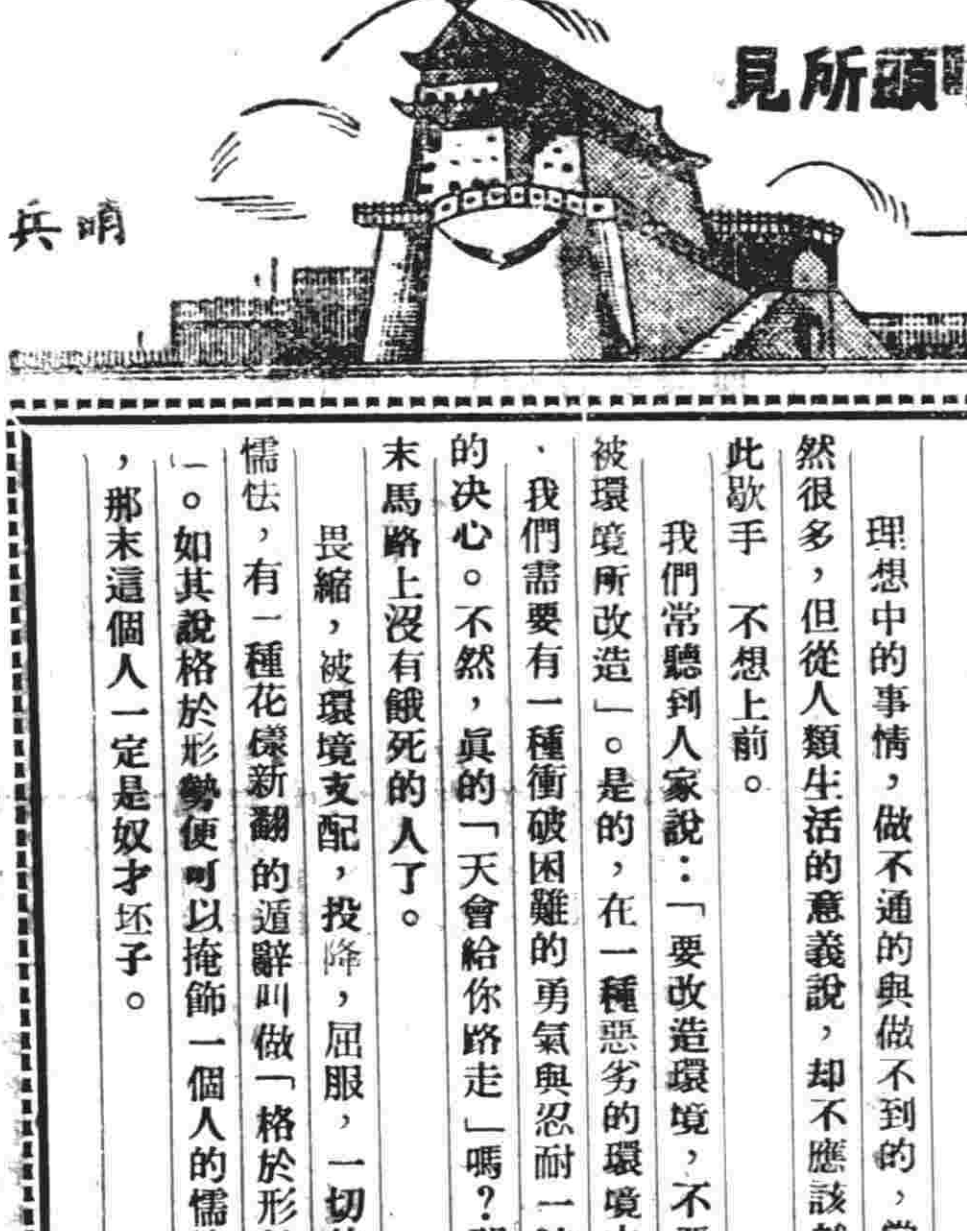 頭所見
哨兵
理想中的事情，做不通的與做不到的，當
然很多，但從人類生活的意義說，却不應該
此歇手　不想上前。
我們常聽到人家說：「要改造環境，不要
被環境所改造」。是的，在一種惡劣的環境
、我們需要有一種衝破困難的勇氣與忍耐一
的决心。不然，眞的「天會給你路走」嗎？
末馬路上沒有餓死的人了。
畏縮，被環境支配，投降，屈服，一切
懦怯，有一種花樣新翻的遁辭叫做「格於形
」。如其說格於形勢便可以掩飾一個人的懦
，那末這個人一定是奴才坯子。